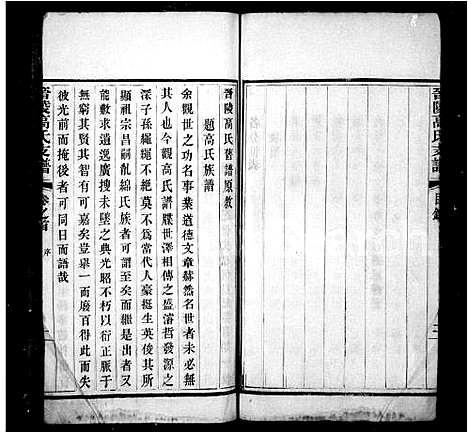 晉陵高氏支譜
目錄
晉陵高氏舊譜原敘
題高氏族譜
余觀世之功名事業道德文章赫然名世者未必無
其人也今觀高氏譜牒世澤相傳之盛濬哲發源之
深子孫繩繩不絶莫不爲當代人豪挺生英俊其所
顯祖宗昌嗣亂綿氏族者可謂至矣而繼是出者又
能數求過逸未墜之典光昭不朽以衍正脈於
無窮其賢其智有可嘉矣豈舉一而廢百得此而失
彼光前而掩後者可同日而語哉
晉陵高氏支譜
卷之首
序